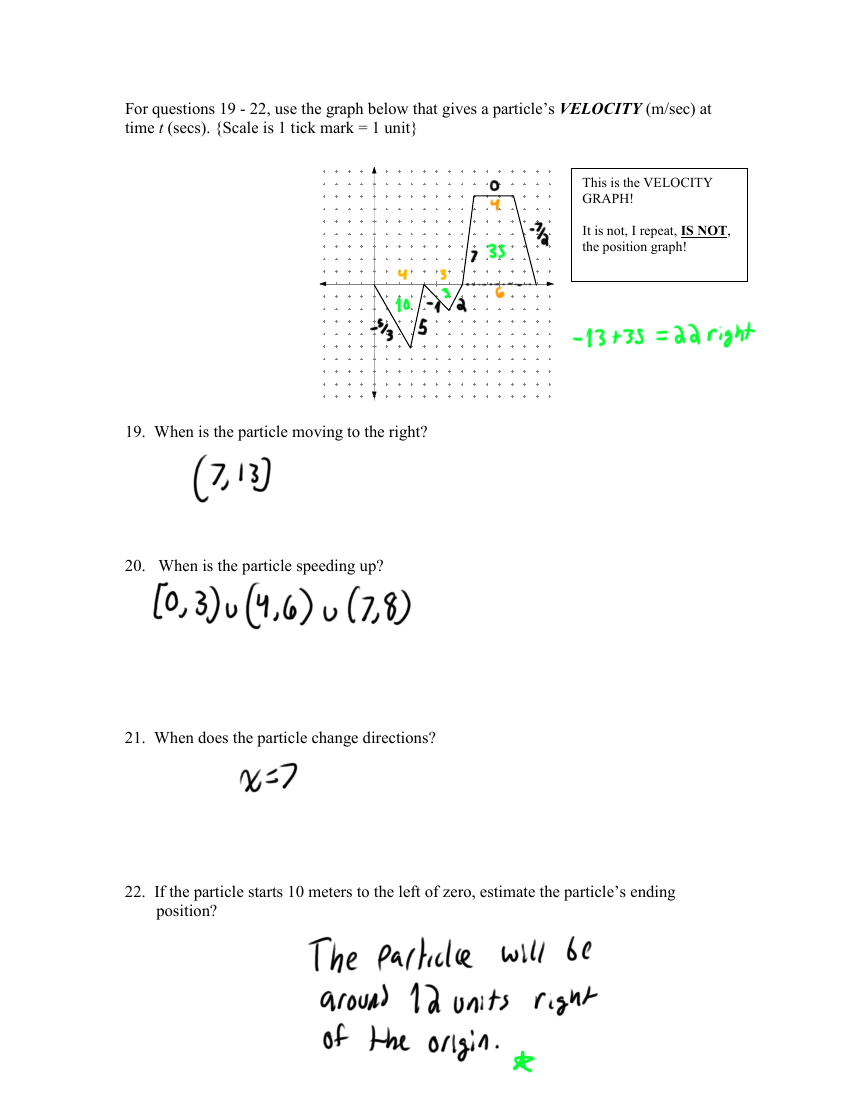 For questions 19 - 22, use the graph below that gives a particle's VELOCITY (m/sec) at
time t (secs). {Scale is 1 tick mark = 1 unit}
This is the VELOCITY
GRAPH!
It is not, I repeat, IS NOT,
the position graph!
0
4
-7/2
7
35
4
3
6
10
3
-1
2
-5/3
5
-13+35 = 22 right
19. When is the particle moving to the right?
(7,13]
20. When is the particle speeding up?
[0,3)∪(4,6)∪(7,8)
21. When does the particle change directions?
x=7
22. If the particle starts 10 meters to the left of zero, estimate the particle's ending
position?
The particle will be
around 12 units right
of the origin.